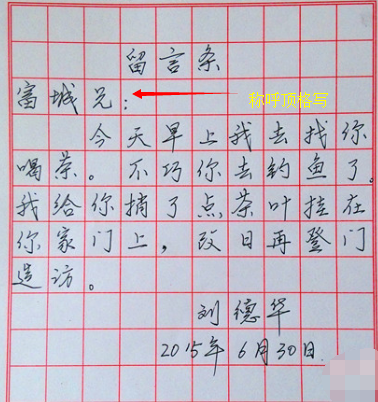 留言条
富城兄：
称呼顶格写
今天早上我去找你
喝茶。不巧你去钓鱼了。
我给你捎了点茶叶挂在
你家门上，改日再登门
造访。
刘德华
2015年6月30日